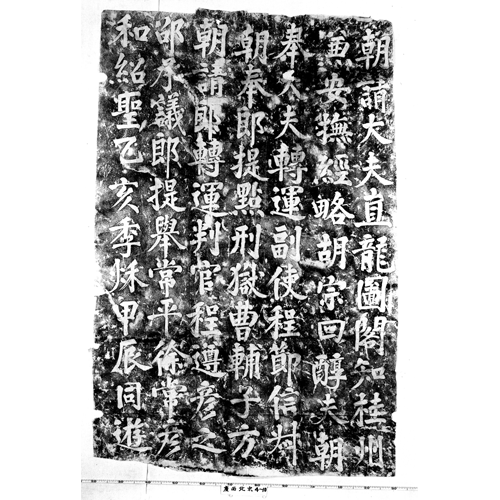 朝請大夫直龍圖閣知桂州
兼安撫經略胡宗回醇夫朝
奉大夫轉運副使程節信叔
朝奉郎提點刑獄曹輔子方
朝請郎轉運判官程遵彥之
邵承議郎提舉常平徐常彥
和紹聖乙亥季秋甲辰同遊